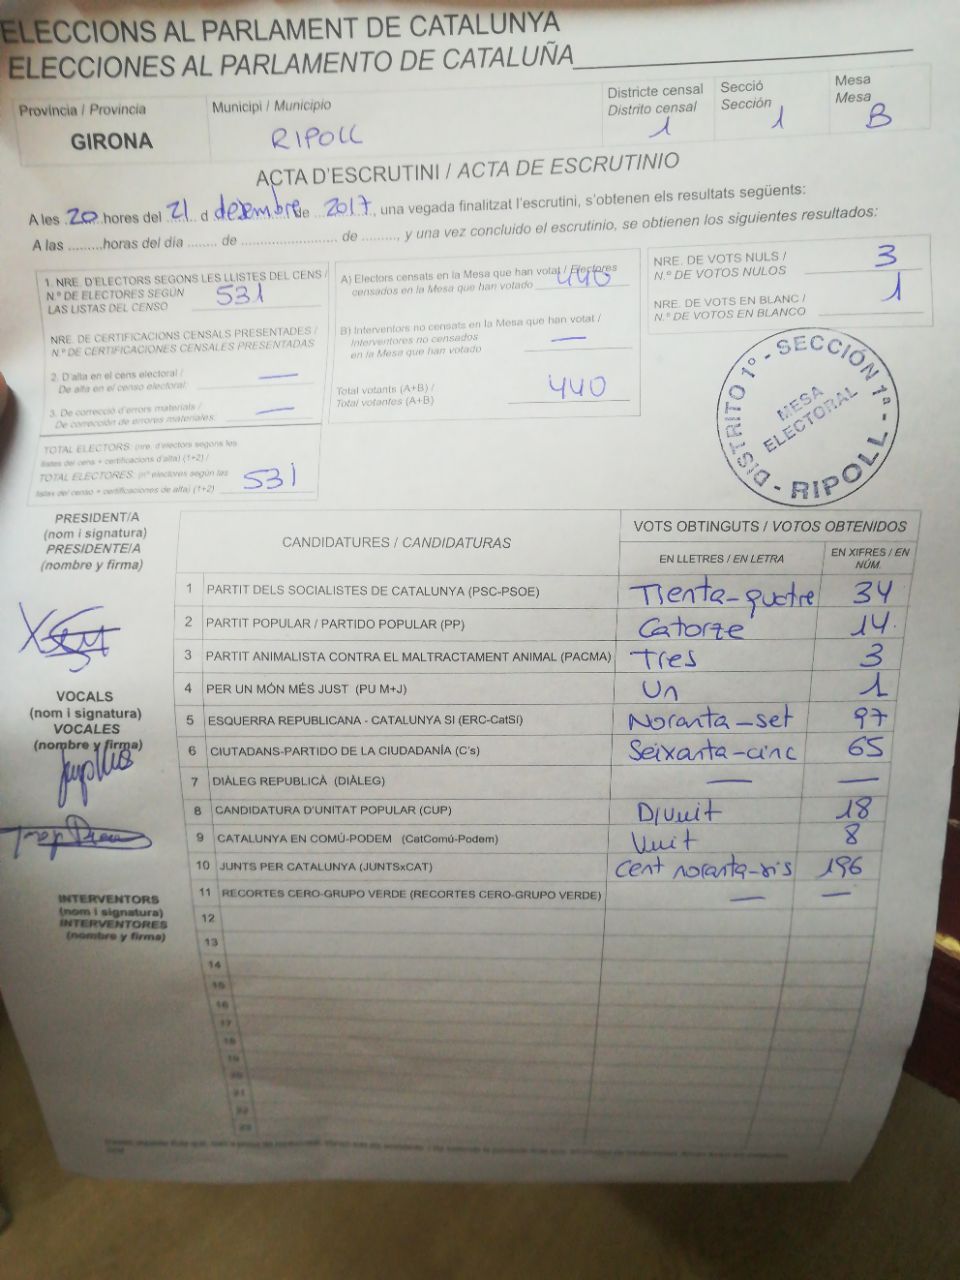 ELECCIONS AL PARLAMENT DE CATALUNYA
ELECCIONES AL PARLAMENTO DE CATALUÑA
Província / Provincia
GIRONA
Municipi / Municipio
RIPOLL
Districte censal
Distrito censal
1
Secció
Sección
1
Mesa
Mesa
B
ACTA D'ESCRUTINI / ACTA DE ESCRUTINIO
A les 20 hores del 21 d desembre de 2017, una vegada finalitzat l'escrutini, s'obtenen els resultats següents:
A las .........horas del día ....... de ......................... de ........., y una vez concluido el escrutinio, se obtienen los siguientes resultados:
1. NRE. D'ELECTORS SEGONS LES LLISTES DEL CENS /
N.º DE ELECTORES SEGÚN
LAS LISTAS DEL CENSO
531
NRE. DE CERTIFICACIONS CENSALS PRESENTADES /
N.º DE CERTIFICACIONES CENSALES PRESENTADAS
2. D'alta en el cens electoral /
De alta en el censo electoral: —
3. De correcció d'errors materials /
De corrección de errores materiales: —
TOTAL ELECTORS: (nre. d'electors segons les
llistes del cens + certificacions d'alta) (1+2) /
TOTAL ELECTORES: (nº electores según las
listas del censo + certificaciones de alta) (1+2) 531
A) Electors censats en la Mesa que han votat / Electores
censados en la Mesa que han votado 440
B) Interventors no censats en la Mesa que han votat /
Interventores no censados
en la Mesa que han votado —
Total votants (A+B) /
Total votantes (A+B) 440
NRE. DE VOTS NULS /
N.º DE VOTOS NULOS 3
NRE. DE VOTS EN BLANC /
N.º DE VOTOS EN BLANCO 1
DISTRITO 1º - SECCIÓN 1ª - RIPOLL -
MESA
ELECTORAL
PRESIDENT/A
(nom i signatura)
PRESIDENTE/A
(nombre y firma)
VOCALS
(nom i signatura)
VOCALES
(nombre y firma)
INTERVENTORS
(nom i signatura)
INTERVENTORES
(nombre y firma)
CANDIDATURES / CANDIDATURAS
VOTS OBTINGUTS / VOTOS OBTENIDOS
EN LLETRES / EN LETRA
EN XIFRES / EN
NÚM.
1 PARTIT DELS SOCIALISTES DE CATALUNYA (PSC-PSOE) Trenta-quatre 34
2 PARTIT POPULAR / PARTIDO POPULAR (PP) Catorze 14
3 PARTIT ANIMALISTA CONTRA EL MALTRACTAMENT ANIMAL (PACMA) Tres 3
4 PER UN MÓN MÉS JUST (PU M+J) Un 1
5 ESQUERRA REPUBLICANA - CATALUNYA SI (ERC-CatSí) Noranta-set 97
6 CIUTADANS-PARTIDO DE LA CIUDADANÍA (C's) Seixanta-cinc 65
7 DIÀLEG REPUBLICÀ (DIÀLEG) — —
8 CANDIDATURA D'UNITAT POPULAR (CUP) Divuit 18
9 CATALUNYA EN COMÚ-PODEM (CatComú-Podem) Vuit 8
10 JUNTS PER CATALUNYA (JUNTSxCAT) Cent noranta-sis 196
11 RECORTES CERO-GRUPO VERDE (RECORTES CERO-GRUPO VERDE) — —
12
13
14
15
16
17
18
19
20
21
22
23